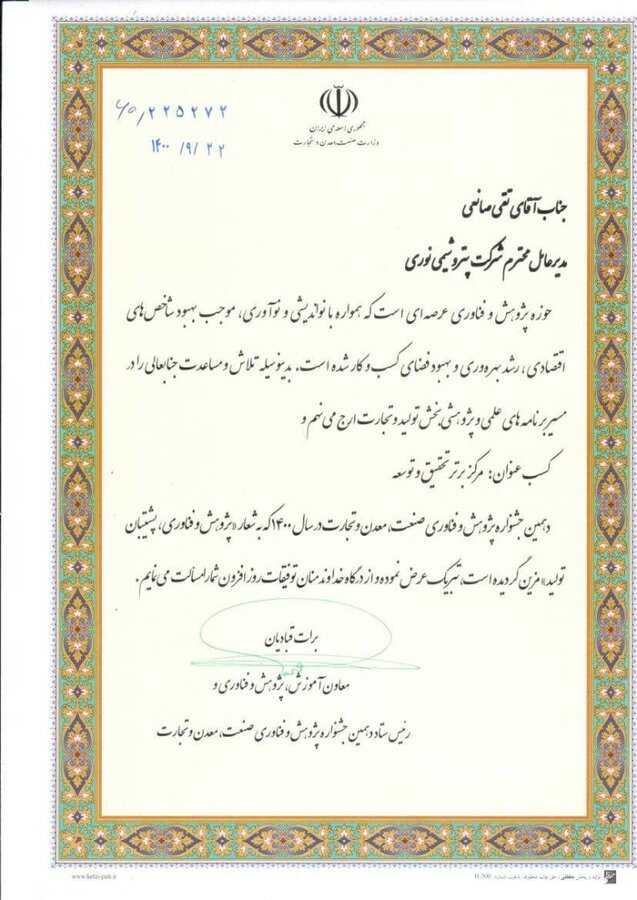 ۶۰/۲۲۵۲۷۲
۱۴۰۰/۹/۲۲
جمهوری اسلامی ایران
وزارت صنعت، معدن و تجارت
جناب آقای تقی صانعی
مدیرعامل محترم شرکت پتروشیمی نوری
حوزه پژوهش و فناوری عرصه‌ای است که همواره با نواندیشی و نوآوری، موجب بهبود شاخص‌های
اقتصادی، رشد بهره‌وری و بهبود فضای کسب و کار شده است. بدینوسیله تلاش و مساعدت جنابعالی را در
مسیر برنامه‌های علمی و پژوهشی بخش تولید و تجارت ارج می‌نهم و
کسب عنوان: مرکز برتر تحقیق و توسعه
دهمین جشنواره پژوهش و فناوری صنعت، معدن و تجارت در سال ۱۴۰۰ که به شعار «پژوهش و فناوری، پشتیبان
تولید» مزین گردیده است، تبریک عرض نموده و از درگاه خداوند منان توفیقات روزافزون شما را مسألت می‌نمایم.
برات قبادیان
معاون آموزش، پژوهش و فناوری و
رئیس ستاد دهمین جشنواره پژوهش و فناوری صنعت، معدن و تجارت
تولید و پخش حافظی، حق چاپ محفوظ. تذهیب شماره: H-100